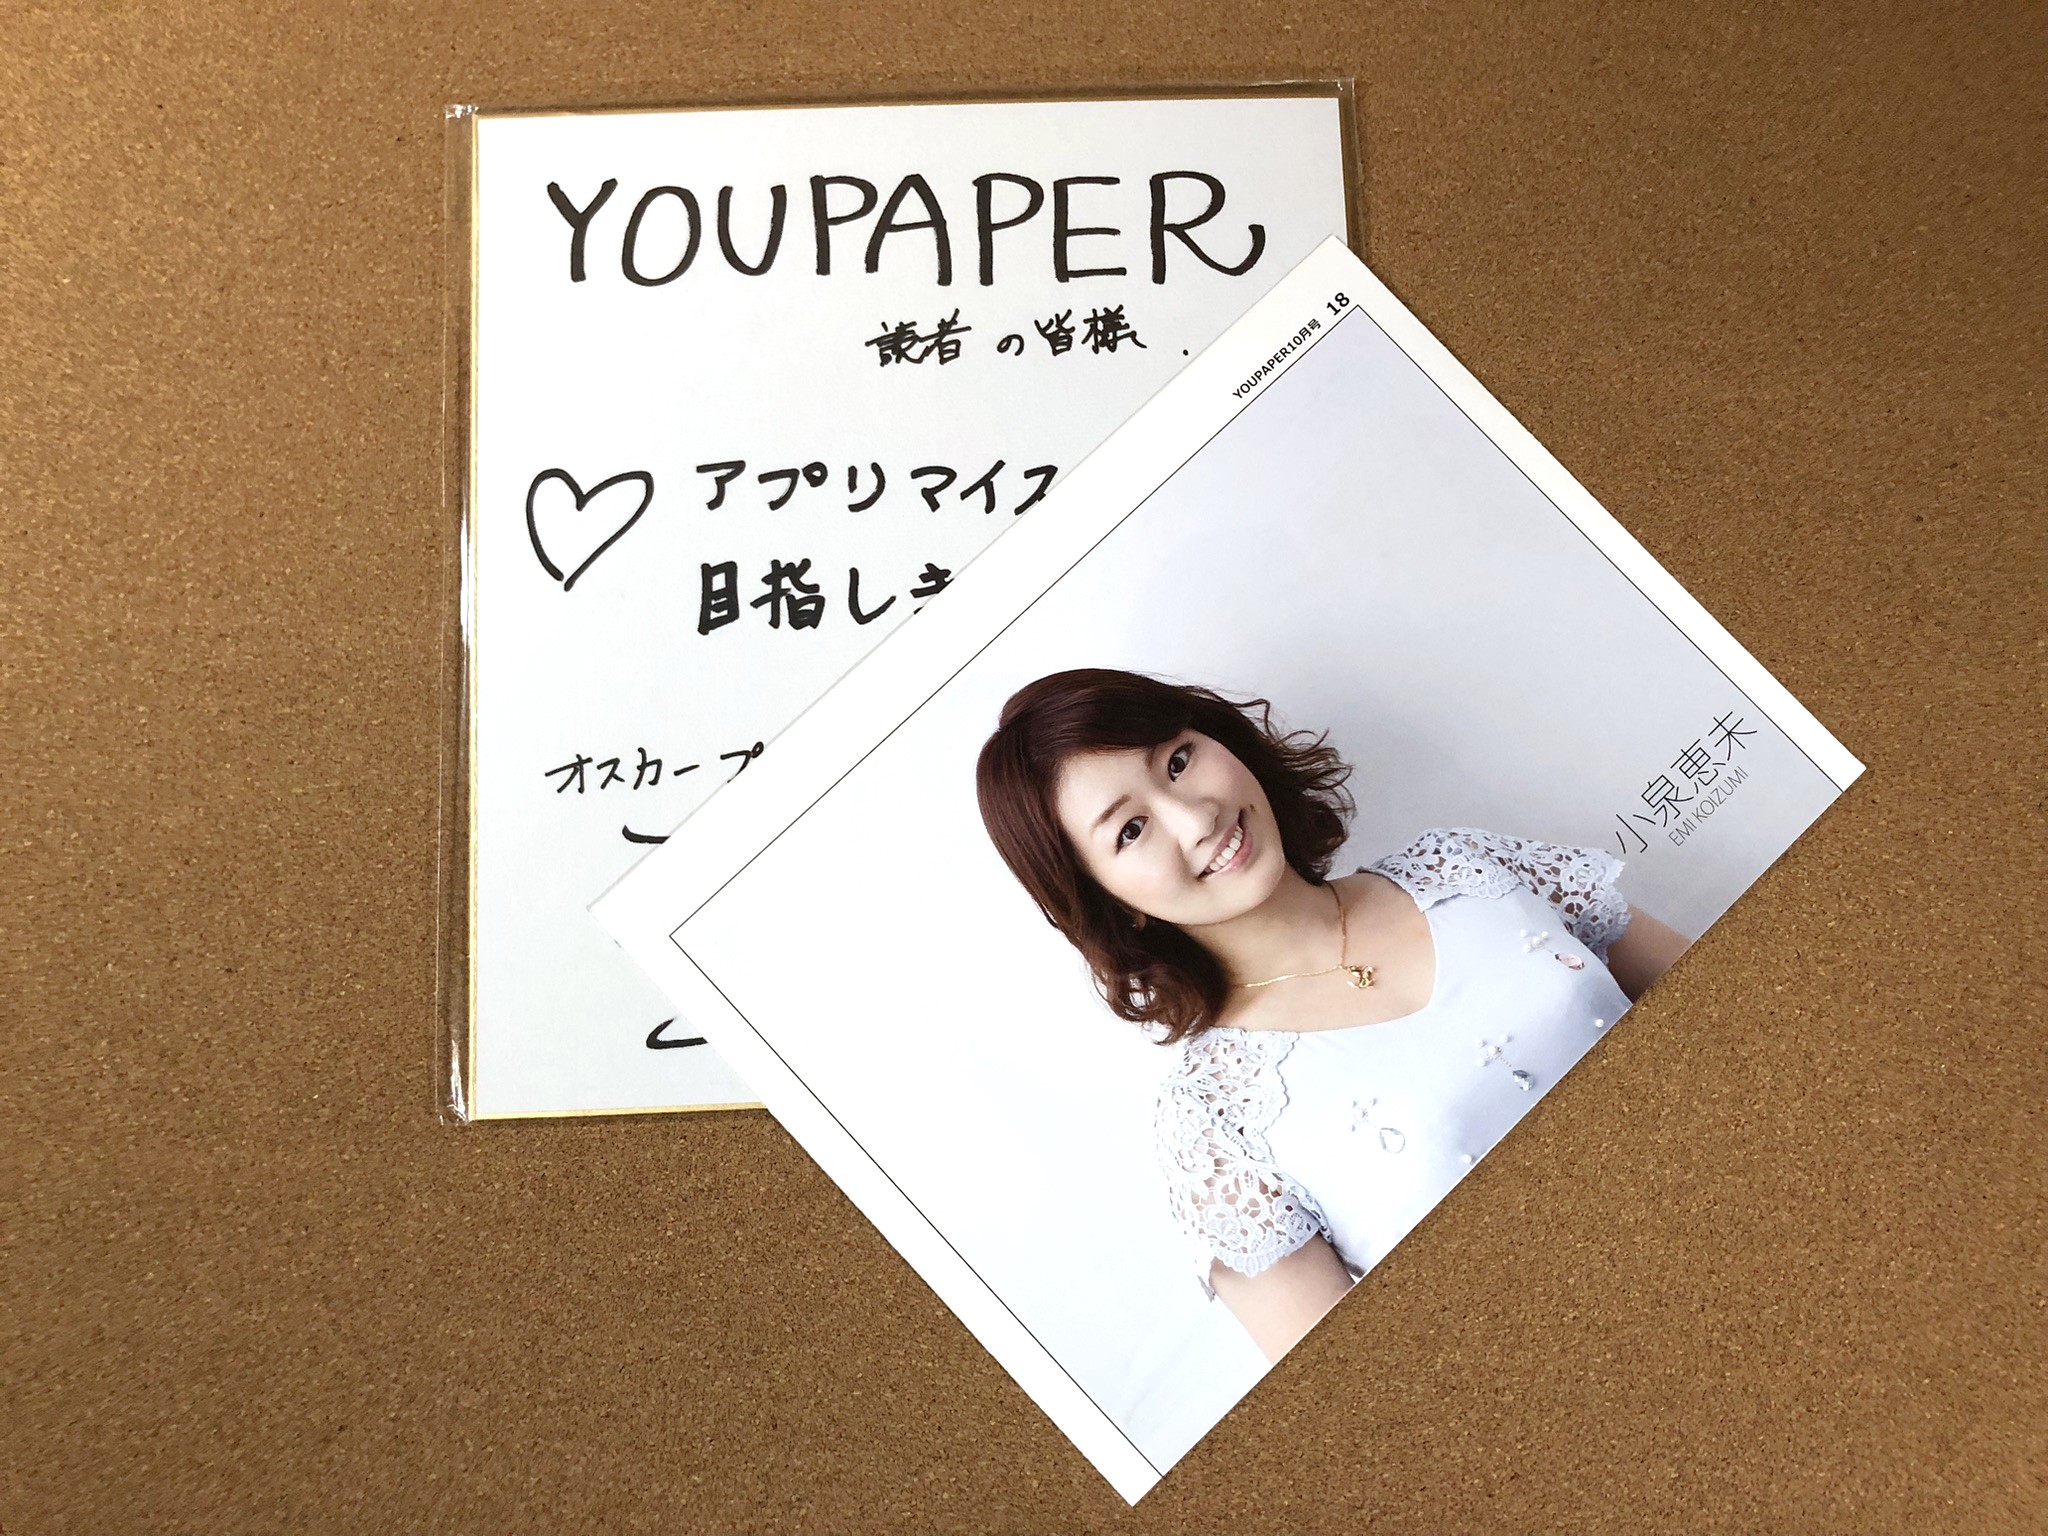 YOUPAPER
読者の皆様
アプリマイス
目指しき
オスカープ
YOUPAPER10月号 18
小泉恵未
EMI KOIZUMI